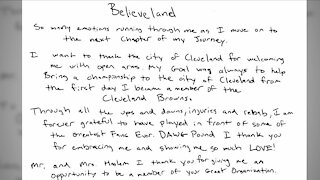 Believeland
So many emotions running through me as I move on to
the next Chapter of my Journey.
I want to thank the city of Cleveland for welcoming
me with open arms my Goal was always to help
Bring a championship to the city of Cleveland from
the first day I became a member of the
Cleveland Browns.
Through all the ups and downs, injuries and rehab, I am
forever grateful to have played in front of some of
the Greatest Fans Ever. DAWG Pound I thank you
for embracing me and showing me so much LOVE!
Mr. and Mrs. Haslam I thank you for giving me an
opportunity to be a member of your Great Organization.